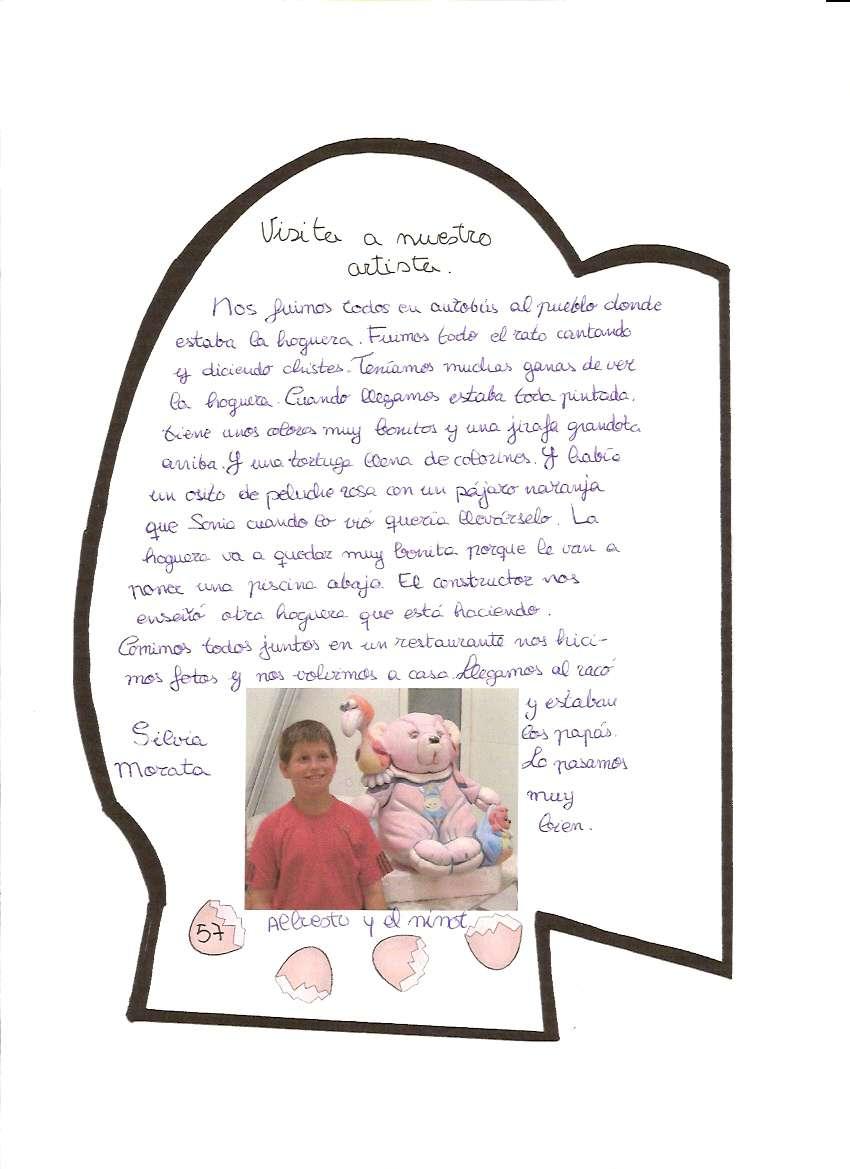 Visita a nuestro
artista.
Nos fuimos todos en autobús al pueblo donde
estaba la hoguera. Fuimos todo el rato cantando
y diciendo chistes. Teníamos muchas ganas de ver
la hoguera. Cuando llegamos estaba toda pintada,
tiene unos colores muy bonitos y una jirafa grandota
arriba. Y una tortuga llena de colorines. Y había
un osito de peluche rosa con un pájaro naranja
que Sonia cuando lo vió quería llevárselo. La
hoguera va a quedar muy bonita porque le van a
poner una piscina abajo. El constructor nos
enseñó otra hoguera que está haciendo.
Comimos todos juntos en un restaurante nos hici-
mos fotos y nos volvimos a casa. Llegamos al racó
y estaban
los papás.
Lo pasamos
muy
bien.
Silvia
Morata
Alberto y el ninot
57